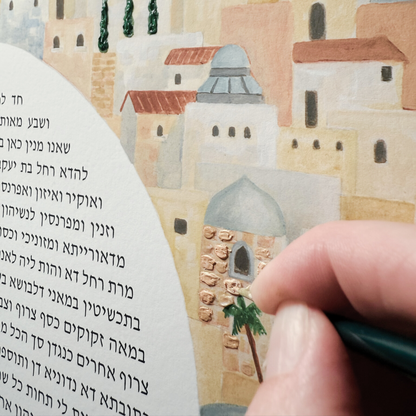 חד לח
ושבע מאות
שאנו מנין כאן ב
להדא רחל בת יעקו
ואוקיר ואיזון ואפרנס
וזנין ומפרנסין לנשיהון
מדאורייתא ומזוניכי וכסו
מרת רחל דא והות ליה לאנ
בתכשיטין במאני דלבושא בש
במאה זקוקים כסף צרוף וצב
צרוף אחרים כנגדן סך הכל מ
כתובתא דא נדוניא דן ותוספ
לי תחות כל שמ